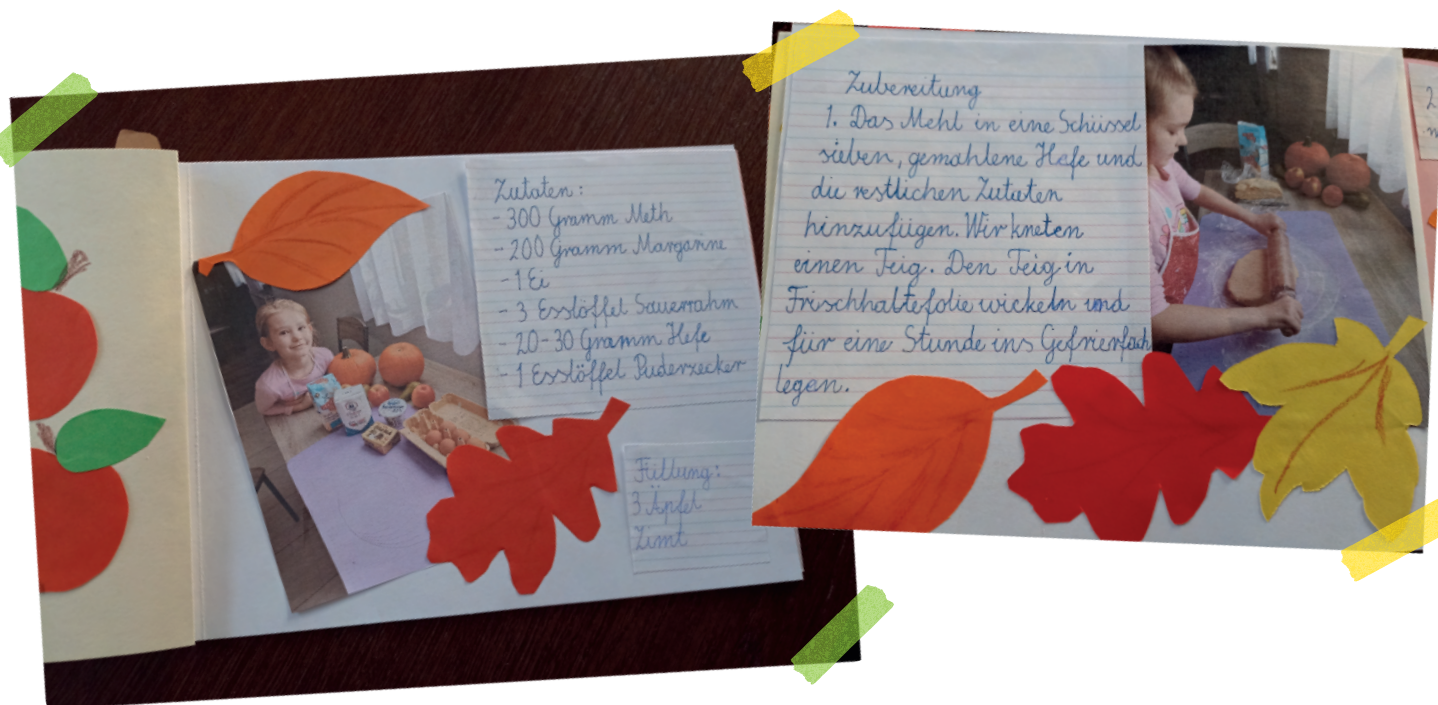 Zutaten:
- 300 Gramm Meth
- 200 Gramm Margarine
- 1 Ei
- 3 Esslöffel Sauerrahm
- 20-30 Gramm Hefe
- 1 Esslöffel Puderzecker
Füllung:
3 Äpfel
Zimt
Zubereitung
1. Das Mehl in eine Schüssel
sieben, gemahlene Hefe und
die restlichen Zutaten
hinzufügen. Wir kneten
einen Teig. Den Teig in
Frischhaltefolie wickeln und
für eine Stunde ins Gefrierfach
legen.
2